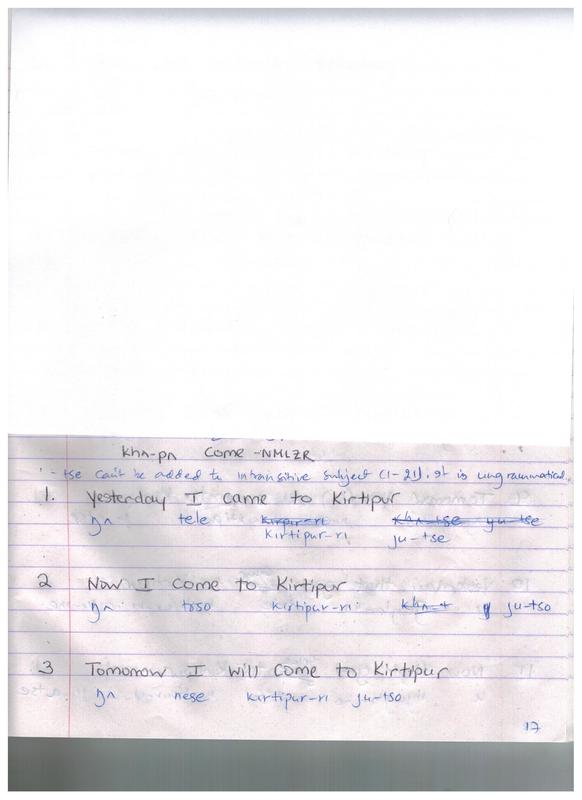 khʌ-pʌ come -NMLZR
'-tse can't be added to intransitive subject (1-21). It is ungrammatical.
1. Yesterday I came to Kirtipur
ŋʌ tele kirpir-ri khʌ-tse yu-tse
kirtipur-ri ju-tse
2 Now I come to Kirtipur
ŋʌ toso kirtipur-ri khʌ-t ju-tso
3 Tomorrow I will come to Kirtipur
ŋʌ nese kirtipur-ri ju-tso
17